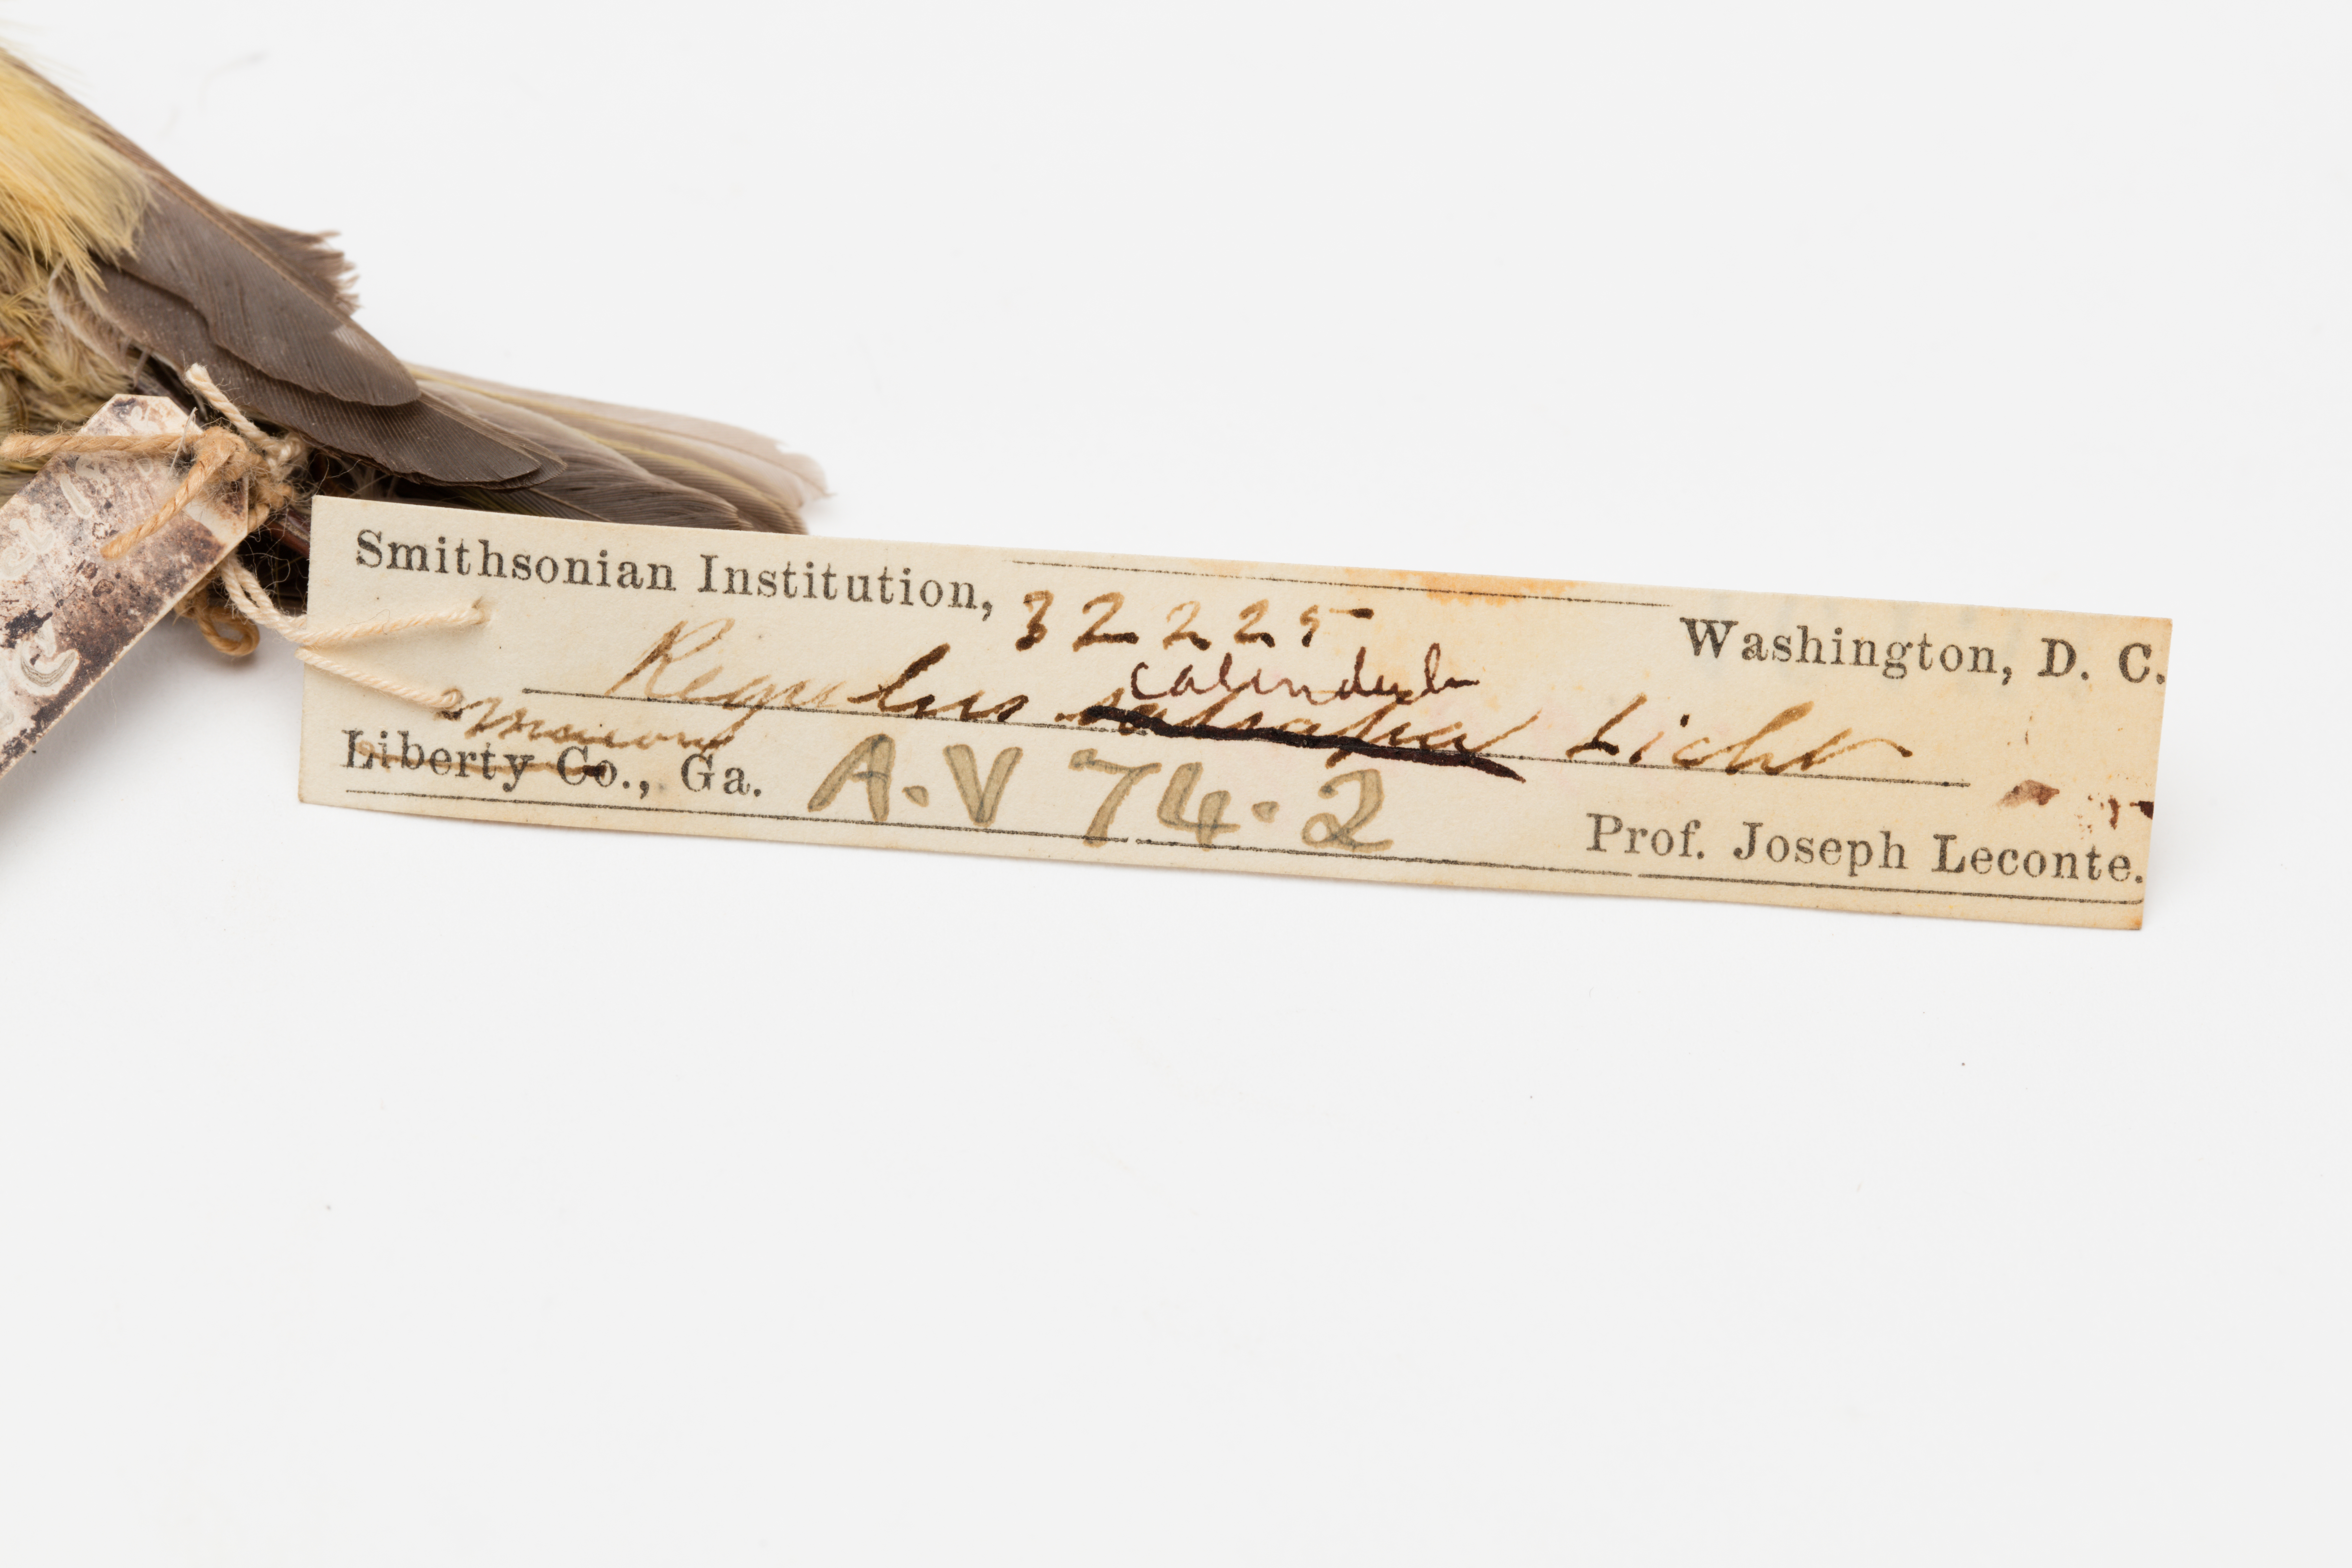 Smithsonian Institution, 32225 Washington, D. C.
calendula
Regulus satrapa Licht
Macon
Liberty Co., Ga. A.V 74.2 Prof. Joseph Leconte.